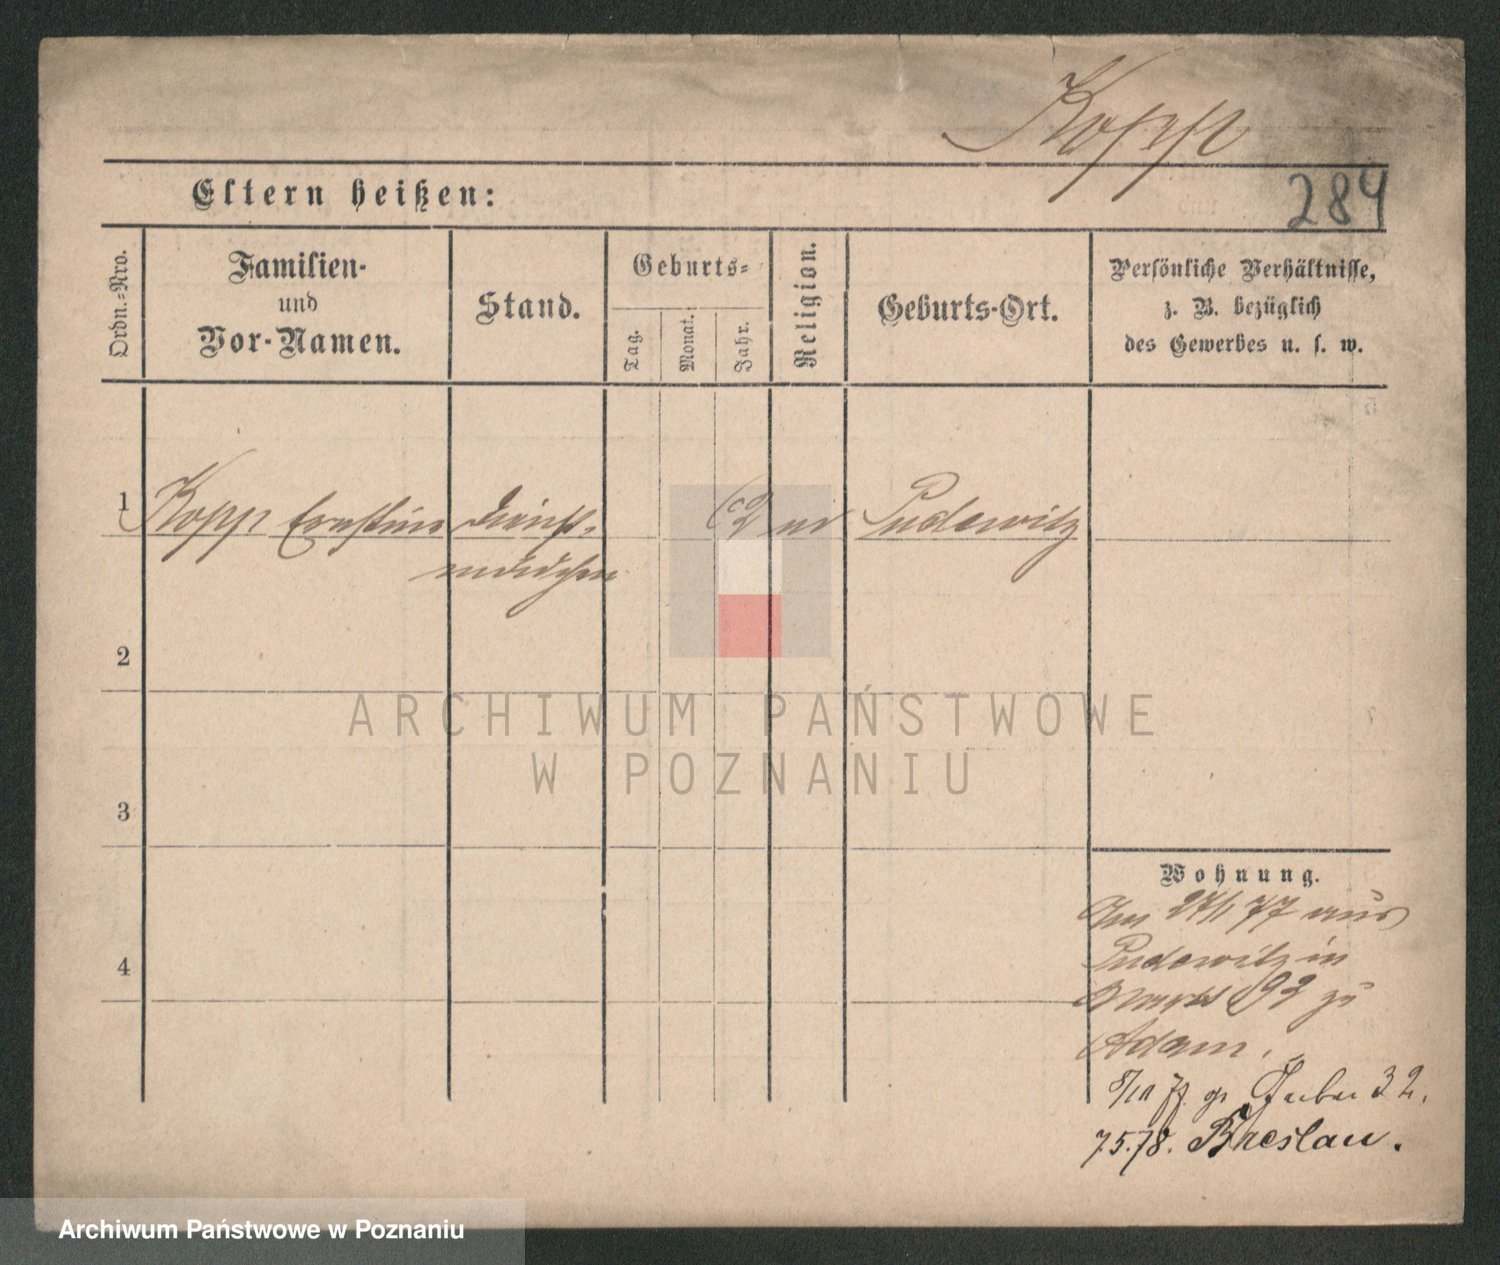 Kopp
284
Eltern heißen:
Ordn.-Nro.
Familien-
und
Vor-Namen.
Stand.
Geburts-
Tag.
Monat.
Jahr.
Religion.
Geburts-Ort.
Persönliche Verhältnisse,
z. B. bezüglich
des Gewerbes u. s. w.
1 Kopp Ernstine Dienst- Pudewitz
mädchen
2
ARCHIWUM PAŃSTWOWE
W POZNANIU
3
Wohnung.
Am 27/1 77 aus
4
Pudewitz in
92 zu
Adam.
32.
7.5.78. Breslau.
Archiwum Państwowe w Poznaniu